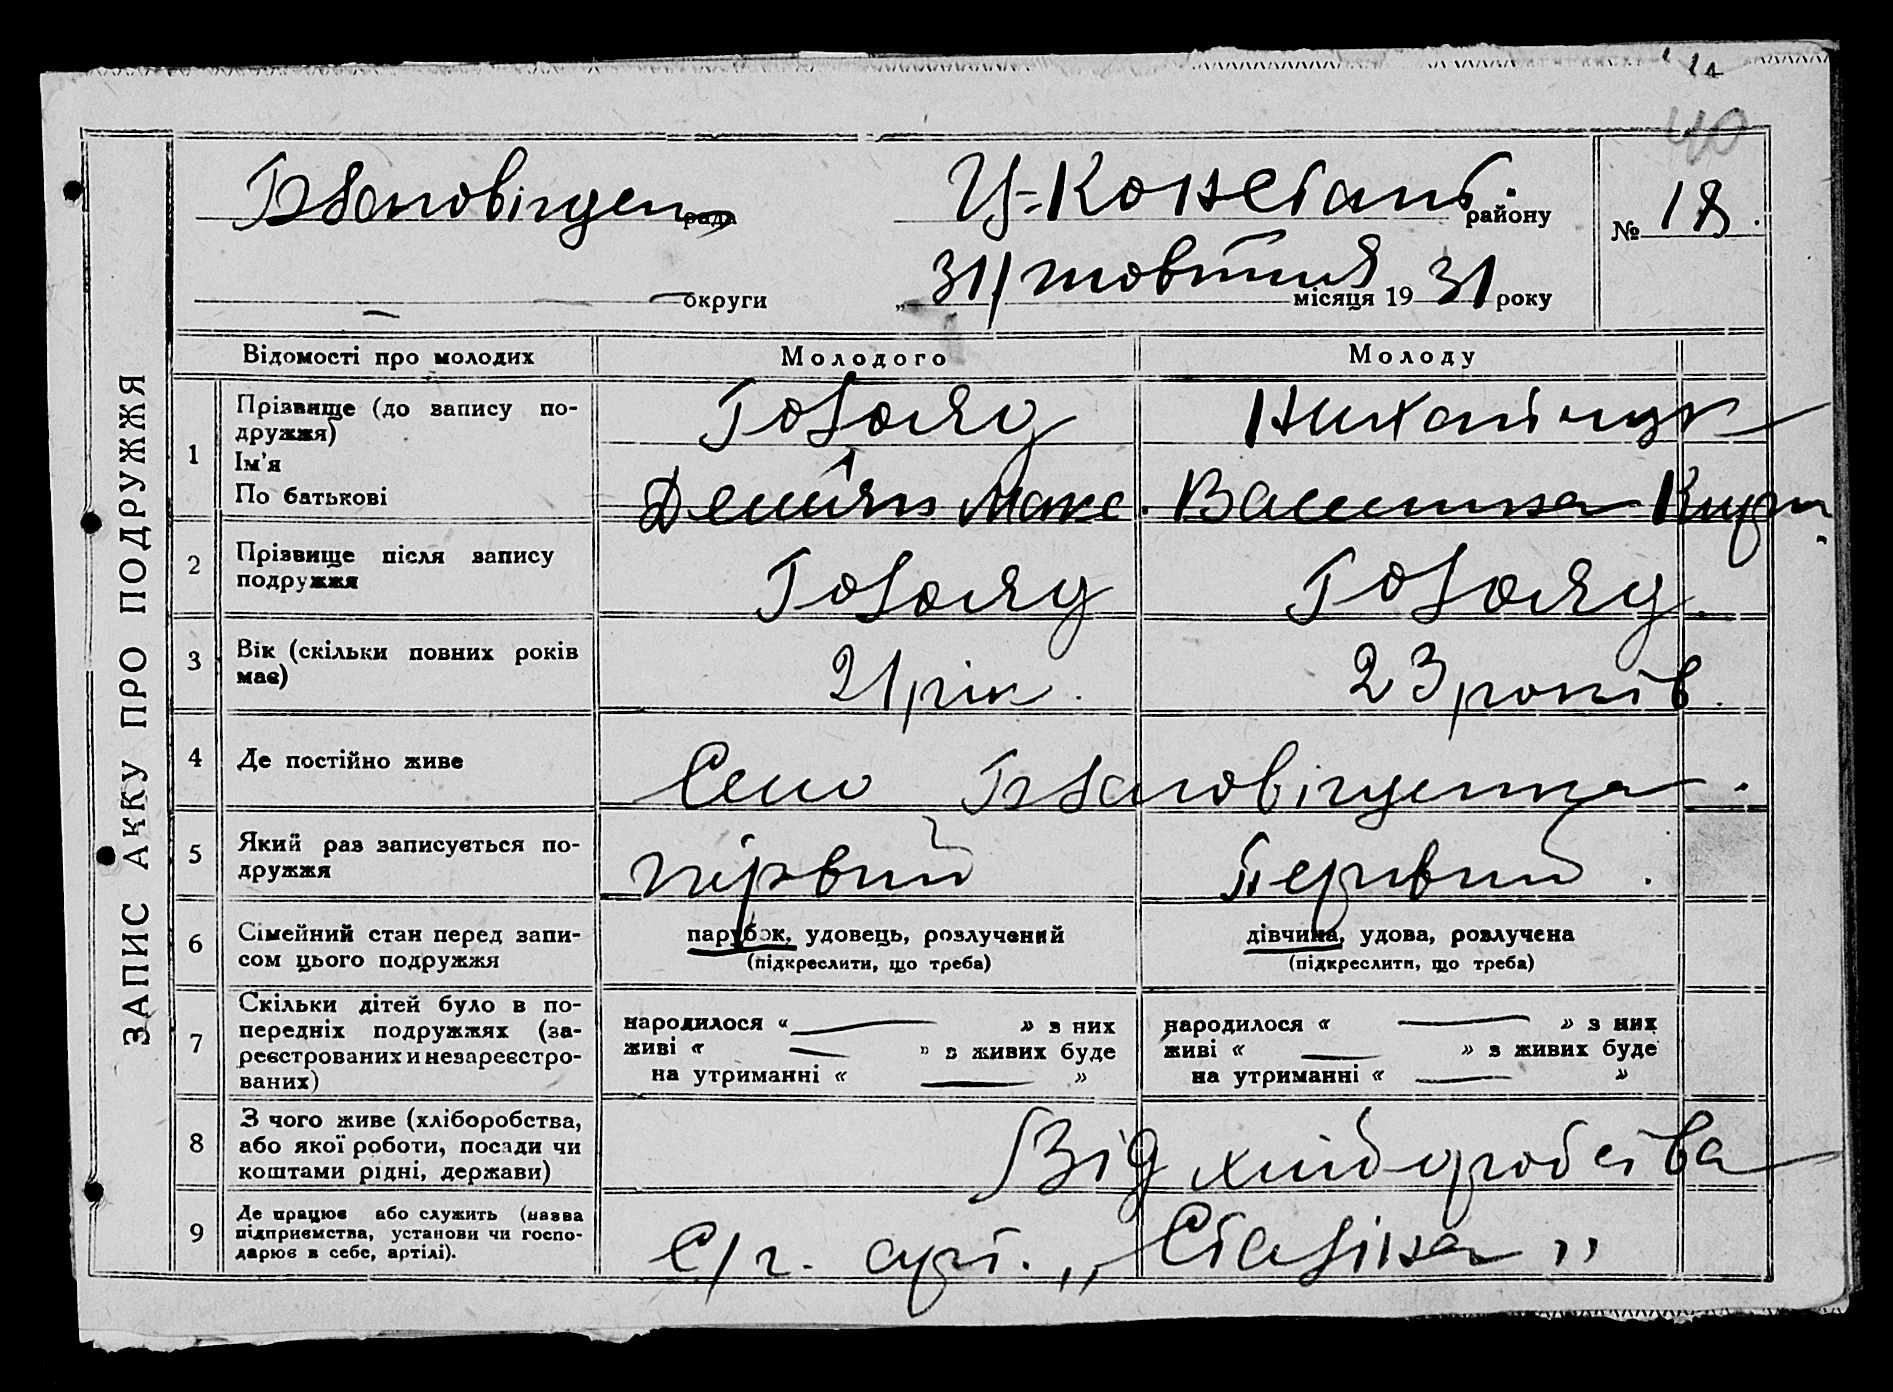 40
рада
У-Констант. району
№ 18.
— округи
„ 31 жовтня місяця 19 31 року
ЗАПИС АККУ ПРО ПОДРУЖЖЯ
Відомості про молодих
Молодого
Молоду
1
Прізвище (до запису по-
дружжя)
Ім'я
По батькові
Демʼян Макс.
2
Прізвище після запису
подружжя
3
Вік (скільки повних років
має)
21 рік.
23 років.
4
Де постійно живе
Село
5
Який раз записується по-
дружжя
первий
Первий.
6
Сімейний стан перед запи-
сом цього подружжя
парубок, удовець, розлучений
(підкреслити, що треба)
дівчина, удова, розлучена
(підкреслити, що треба)
7
Скільки дітей було в по-
передніх подружжях (за-
реєстрованих и незареєстро-
ваних)
народилося « — » з них
живі « — » з живих буде
на утриманні « — »
народилося « — » з них
живі « — » з живих буде
на утриманні « — »
8
З чого живе (хліборобства,
або якої роботи, посади чи
коштами рідні, держави)
Від хліборобства
9
Де працює або служить (назва
підприємства, установи чи госпо-
дарює в себе, артілі).
С/г. арт. „Сталіна"